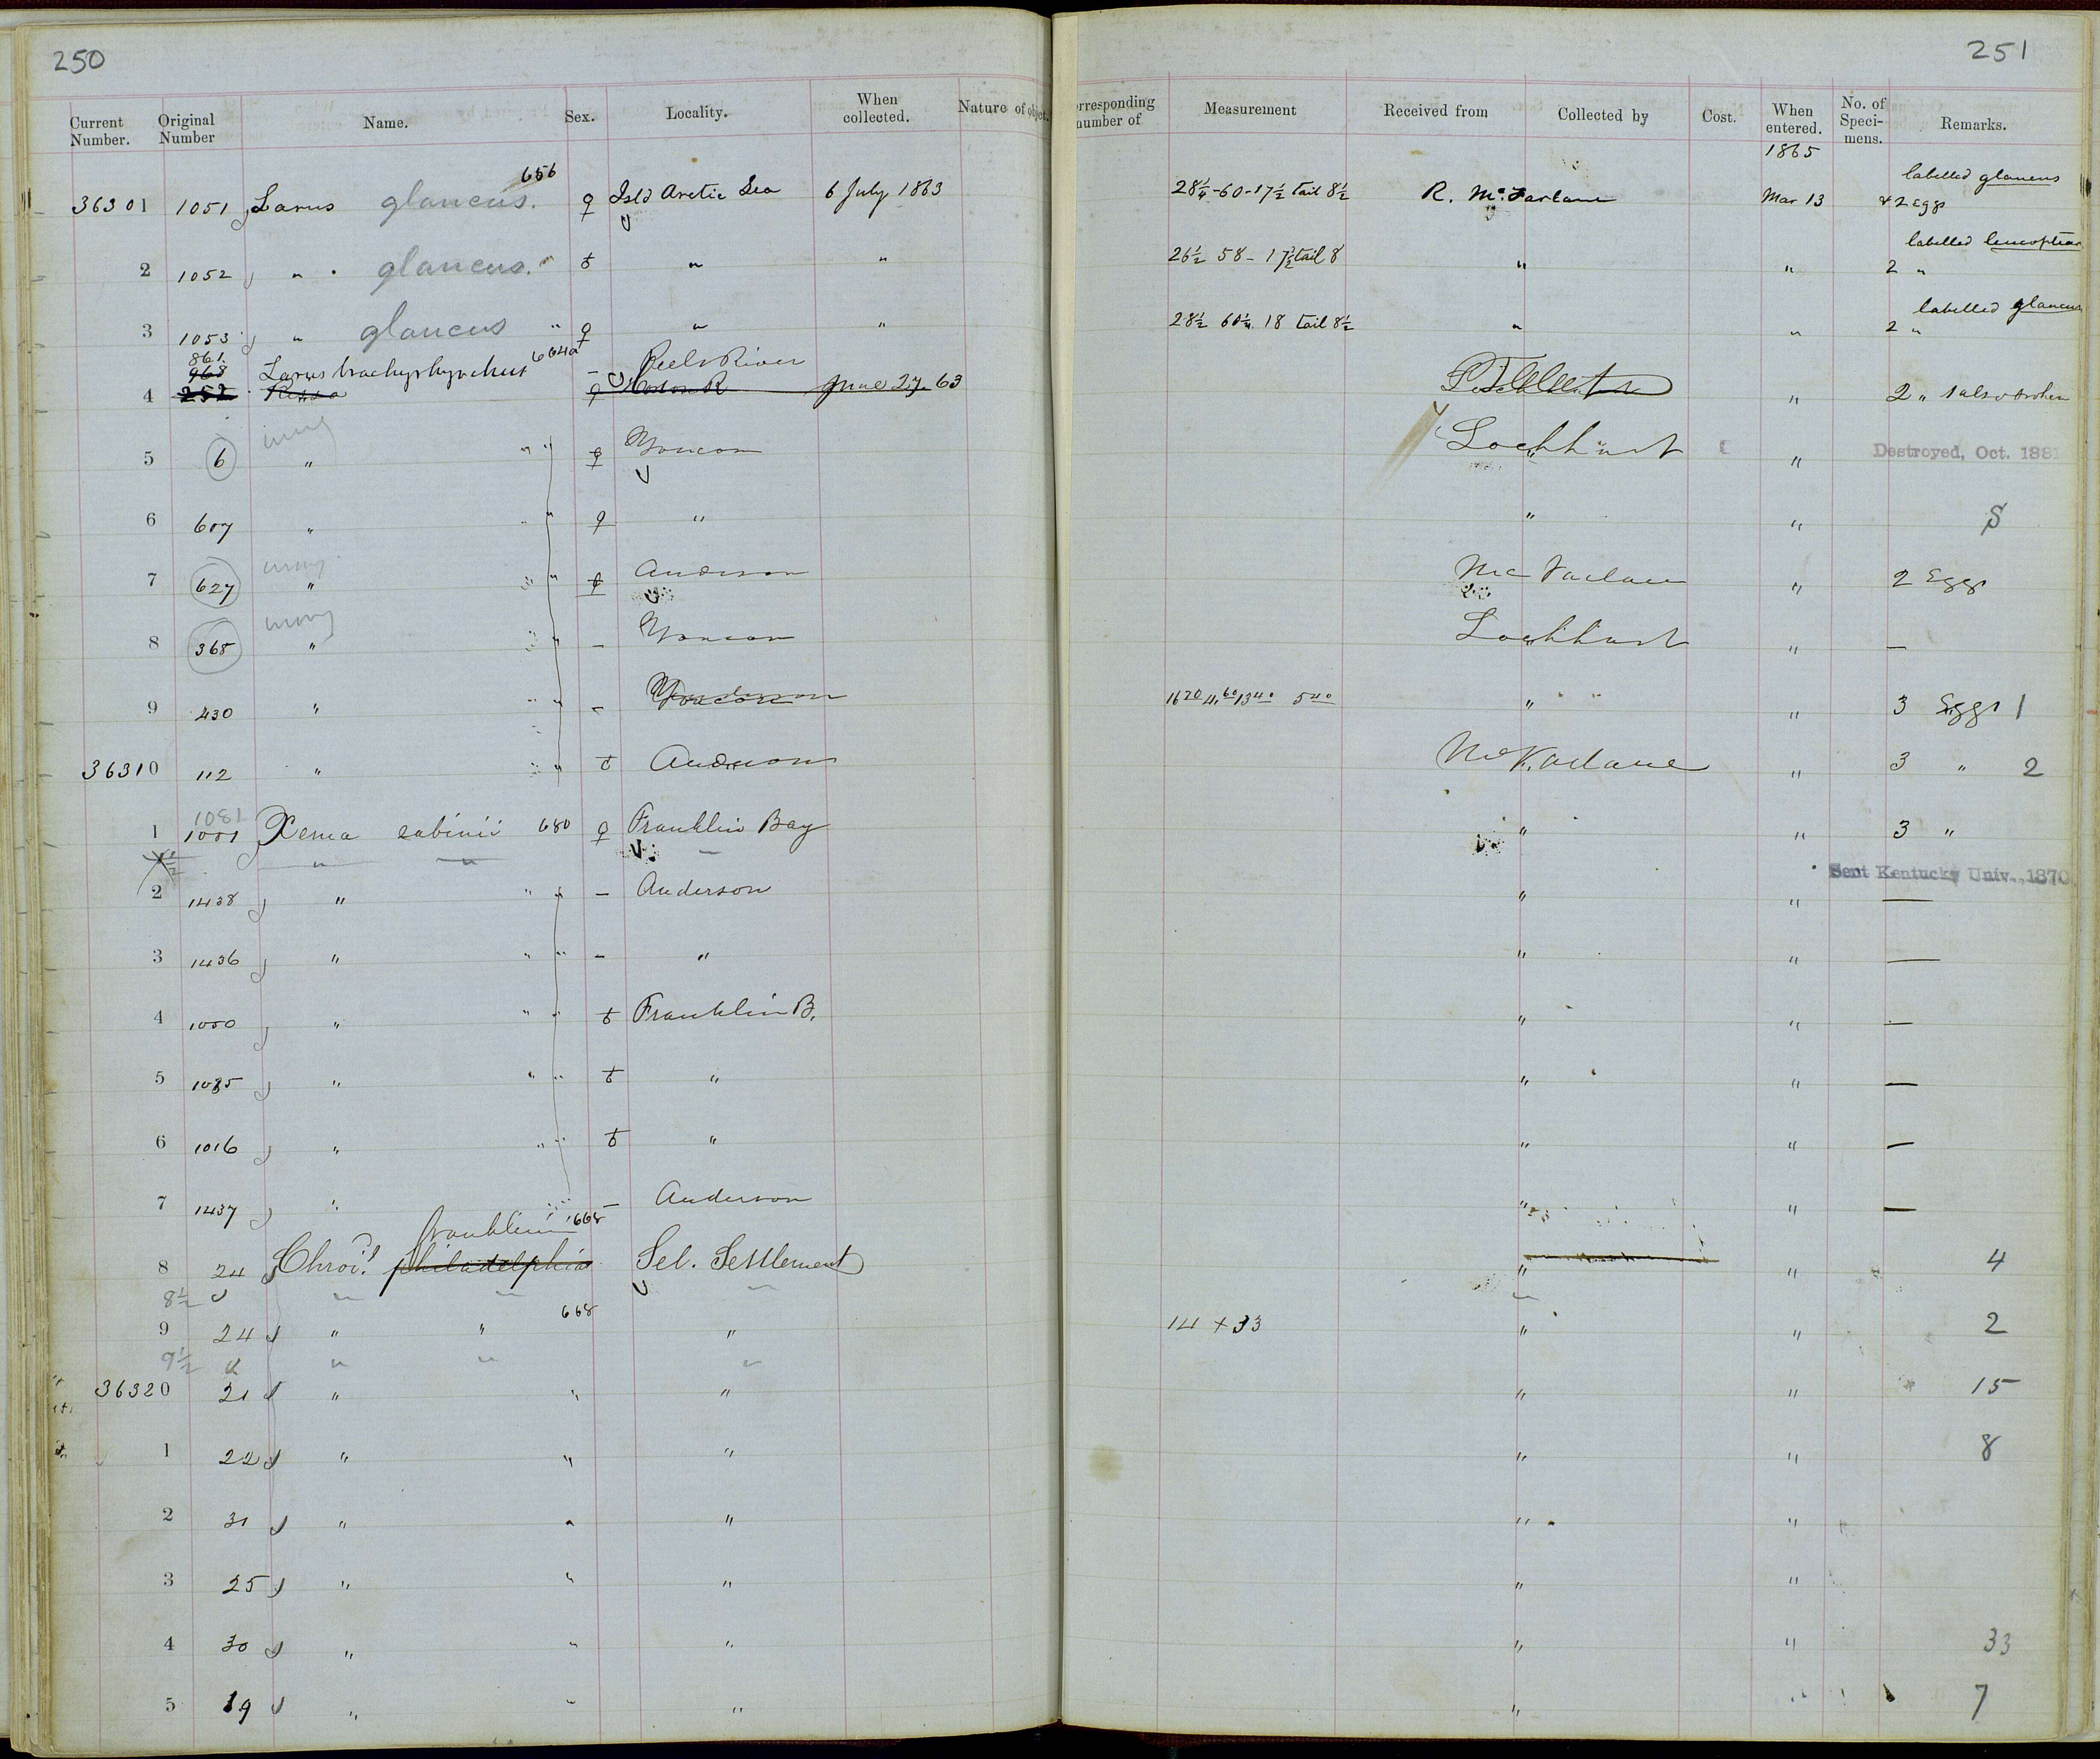 250
251
Current Number. Original Number Name. Sex. Locality. When collected. Nature of object. orresponding number of Measurement Received from Collected by Cost. When entered. No. of Speci- mens. Remarks.
1865
656 labelled glaucus
36301 1051 Larus glaucus. ♀ Isld Arctic Sea 6 July 1863 28¼-60-17½ tail 8½ R. McFarlane Mar 13 & 2 Eggs
labelled leucopterus
2 1052 " glaucus. " ♂ " " 26½ 58-17½ tail 8 " " 2 "
labelled glaucus
3 1053 " glaucus " ♀ " " 28½ 60¼ 18 tail 8½ " " 2 "
861 664a Peels River
968 Larus brachyrhynchus
4 252 Rissa ♀ June 27 63 " 2 " 1 also broken
5 6 " " " ♀ Youcon Lockhart " Destroyed, Oct. 1881
6 607 " " " ♀ " " " S
7 627 " " " ♀ Anderson MacFarlane " 2 Eggs
8 368 " " " – Youcon Lockhart " –
9 430 " " " – Youcon " " 3 Eggs 1
36310 112 " " " ♂ Anderson McFarlane " 3 " 2
1081
1 1001 Xema sabinii 680 ♀ Franklin Bay " " 3 "
½ " "
Sent Kentucky Univ., 1870
2 1438 " " " – Anderson " " —
3 1436 " " " – " " " —
4 1000 " " " ♂ Franklin B. " " —
5 1085 " " " ♂ " " " —
6 1016 " " " ♂ " " " —
7 1437 " " " – Anderson " " —
franklinii 668
8 24 Chroi. philadelphia Sel. Settlement " " 4
8½ " " " "
668
9 24 " " " 14 x 33 " " 2
9½ " " "
36320 21 " " " " " 15
1 22 " " " " " 8
2 31 " " " " "
3 25 " " " " "
4 30 " " " " " 33
5 19 " " " " " 7